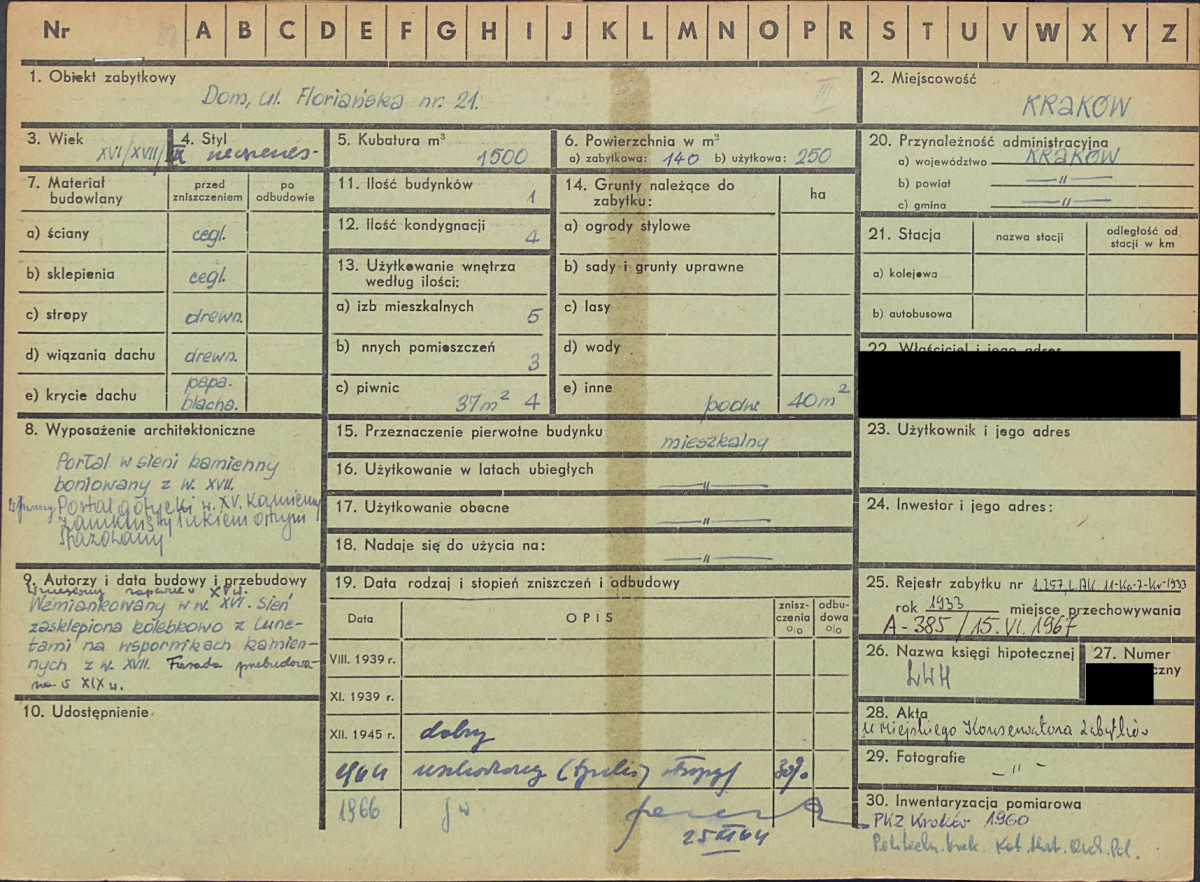 Nr A B C D E F G H I J K L M N O P R S T U V W X Y Z
1. Obiekt zabytkowy
Dom, ul. Floriańska nr. 21.
III
2. Miejscowość
KRAKÓW
3. Wiek
XVI/XVII/XIX
4. Styl
neorenes-
5. Kubatura m³
1500
6. Powierzchnia w m²
a) zabytkowa: 140 b) użytkowa: 250
20. Przynależność administracyjna
a) województwo KRAKÓW
b) powiat —„—
c) gmina —„—
7. Materiał budowlany
przed zniszczeniem
po odbudowie
a) ściany cegl.
b) sklepienia cegl.
c) stropy drewn.
d) wiązania dachu drewn.
e) krycie dachu papa. blacha.
11. Ilość budynków 1
12. Ilość kondygnacji 4
13. Użytkowanie wnętrza
według ilości:
a) izb mieszkalnych 5
b) nnych pomieszczeń 3
c) piwnic 37m² 4
14. Grunty należące do
zabytku:
ha
a) ogrody stylowe
b) sady i grunty uprawne
c) lasy
d) wody
e) inne podw. 40m²
21. Stacja
nazwa stacji
odległość od
stacji w km
a) kolejowa
b) autobusowa
22. Właściciel i jego adres
8. Wyposażenie architektoniczne
Portal w sieni kamienny
boniowany z w. XVII.
Portal gotycki w. XV. kamienny
zamknięty łukiem ostrym
fazowany
15. Przeznaczenie pierwotne budynku mieszkalny
16. Użytkowanie w latach ubiegłych —„—
17. Użytkowanie obecne —„—
18. Nadaje się do użycia na: —„—
23. Użytkownik i jego adres
24. Inwestor i jego adres:
9. Autorzy i data budowy i przebudowy
Wzniesiony zapewne w XV w.
Wzmiankowany w w. XVI. Sień
zasklepiona kolebkowo z lune-
tami na wspornikach kamien-
nych z w. XVII. Fasada przebudowa-
na w XIX w.
10. Udostępnienie
19. Data rodzaj i stopień zniszczeń i odbudowy
Data
OPIS
znisz-
czenia
%
odbu-
dowa
%
VIII. 1939 r.
XI. 1939 r.
XII. 1945 r. dobry
uszkodzony (tynki) stropy 30%
1966 jw
25 III 64
25. Rejestr zabytku nr
rok 1933 miejsce przechowywania
A-385 / 15. VI. 1967
26. Nazwa księgi hipotecznej
LWH
27. Numer
czny
28. Akta
u Miejskiego Konserwatora Zabytków
29. Fotografie
– „ –
30. Inwentaryzacja pomiarowa
PKZ Kraków 1960
Politechn. Krak. Kat. Hist. Arch. Pol.